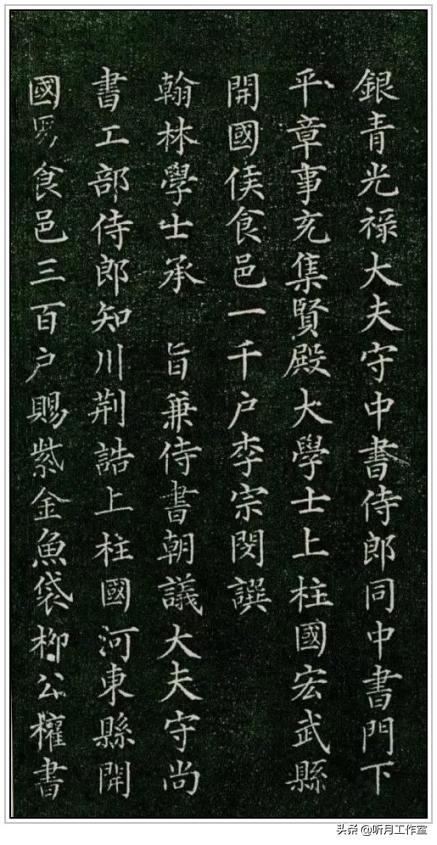 銀青光祿大夫守中書侍郎同中書門下
平章事充集賢殿大學士上柱國宏武縣
開國侯食邑一千户李宗閔譔
翰林學士承 旨兼侍書朝議大夫守尚
書工部侍郎知川荆誥上柱國河東縣開
國男食邑三百户賜紫金魚袋柳公權書
头条 @听月工作室